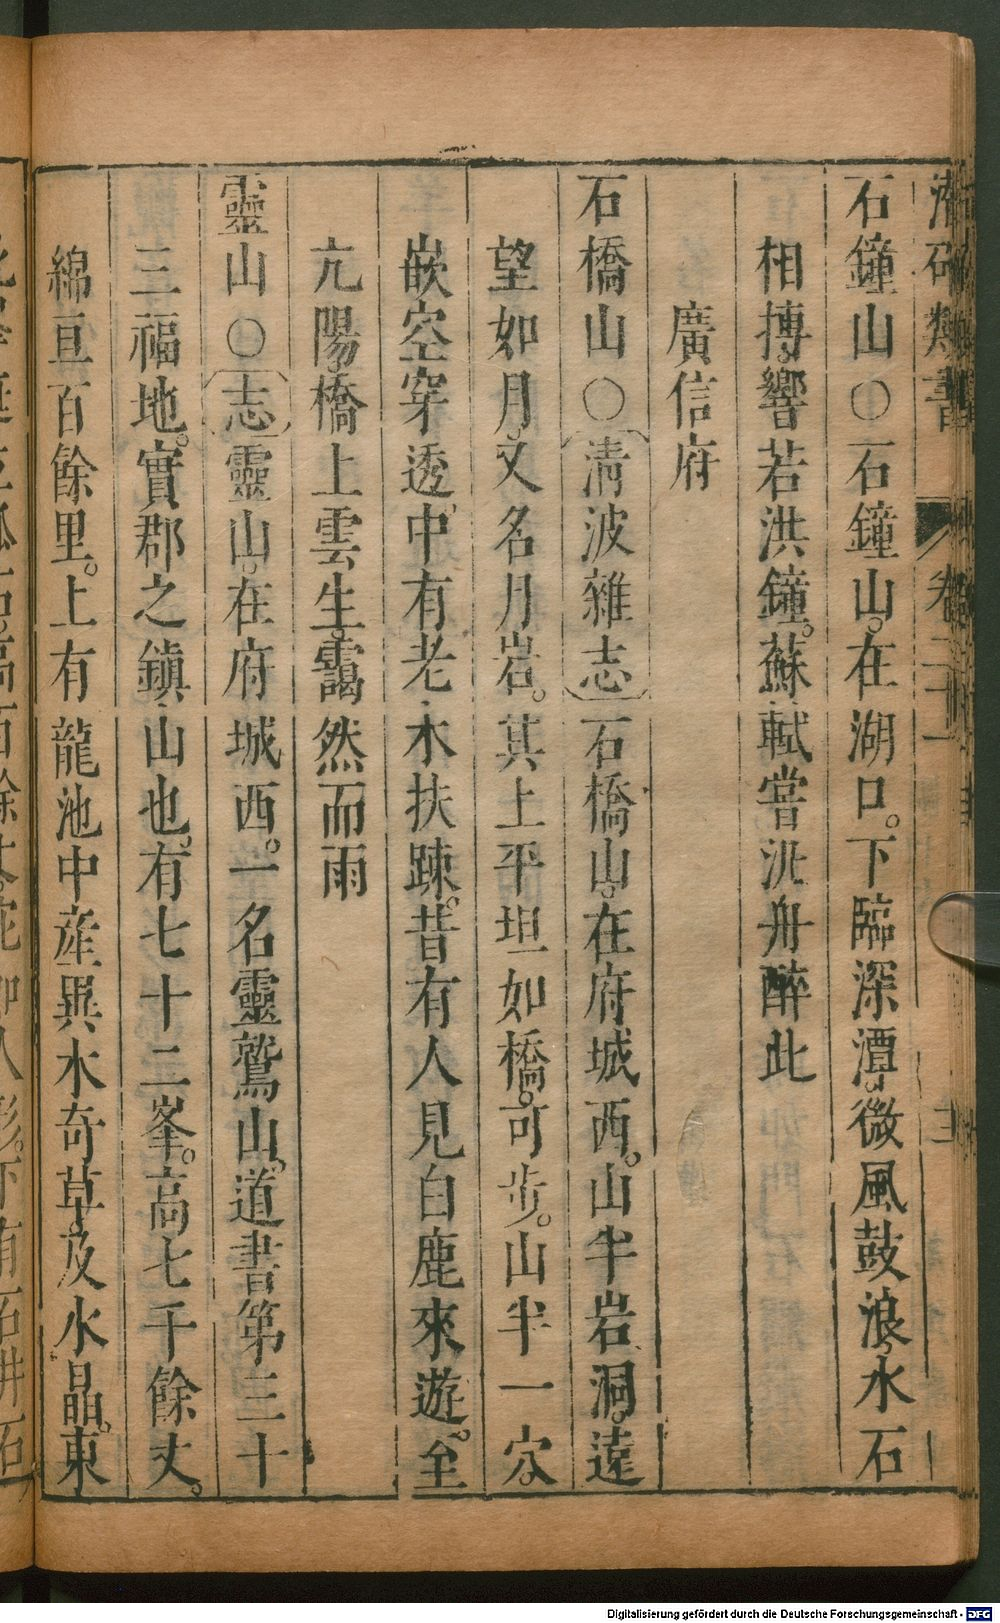 石鐘山○石鐘山。在湖口。下臨深潭。微風鼓浪。水石
相摶。響若洪鐘。蘇軾嘗泛舟醉此
廣信府
石橋山○清波雜志石橋山。在府城西。山半岩洞。遠
望如月。又名月岩。其上平坦如橋。可步。山半一穴。
嵌空穿透。中有老木扶疎。昔有人見白鹿來遊。至
亢陽。橋上雲生。靄然而雨
靈山○志靈山。在府城西。一名靈鷲山。道書第三十
三福地。實郡之鎮山也。有七十二峯。高七千餘丈。
綿亘百餘里。上有龍池中産異水奇草。及水晶。東
Digitalisierung gefördert durch die Deutsche Forschungsgemeinschaft - DFG